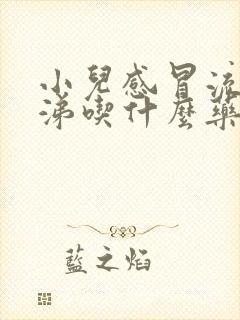 小兒感冒流
涕喫什麼藥
藍之焰